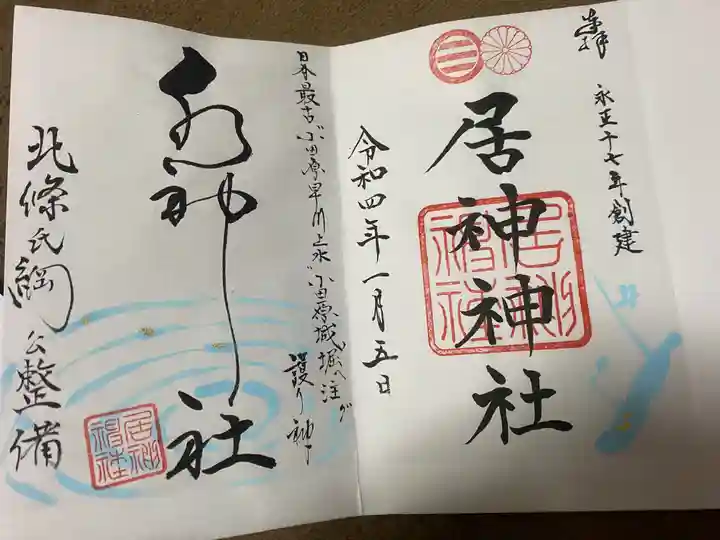 奉拝
永正十七年創建
居神神社
令和四年一月五日
日本最古小田原早川上水"小田原城堀へ注ぐ
護り神
水神社
北條氏綱公整備